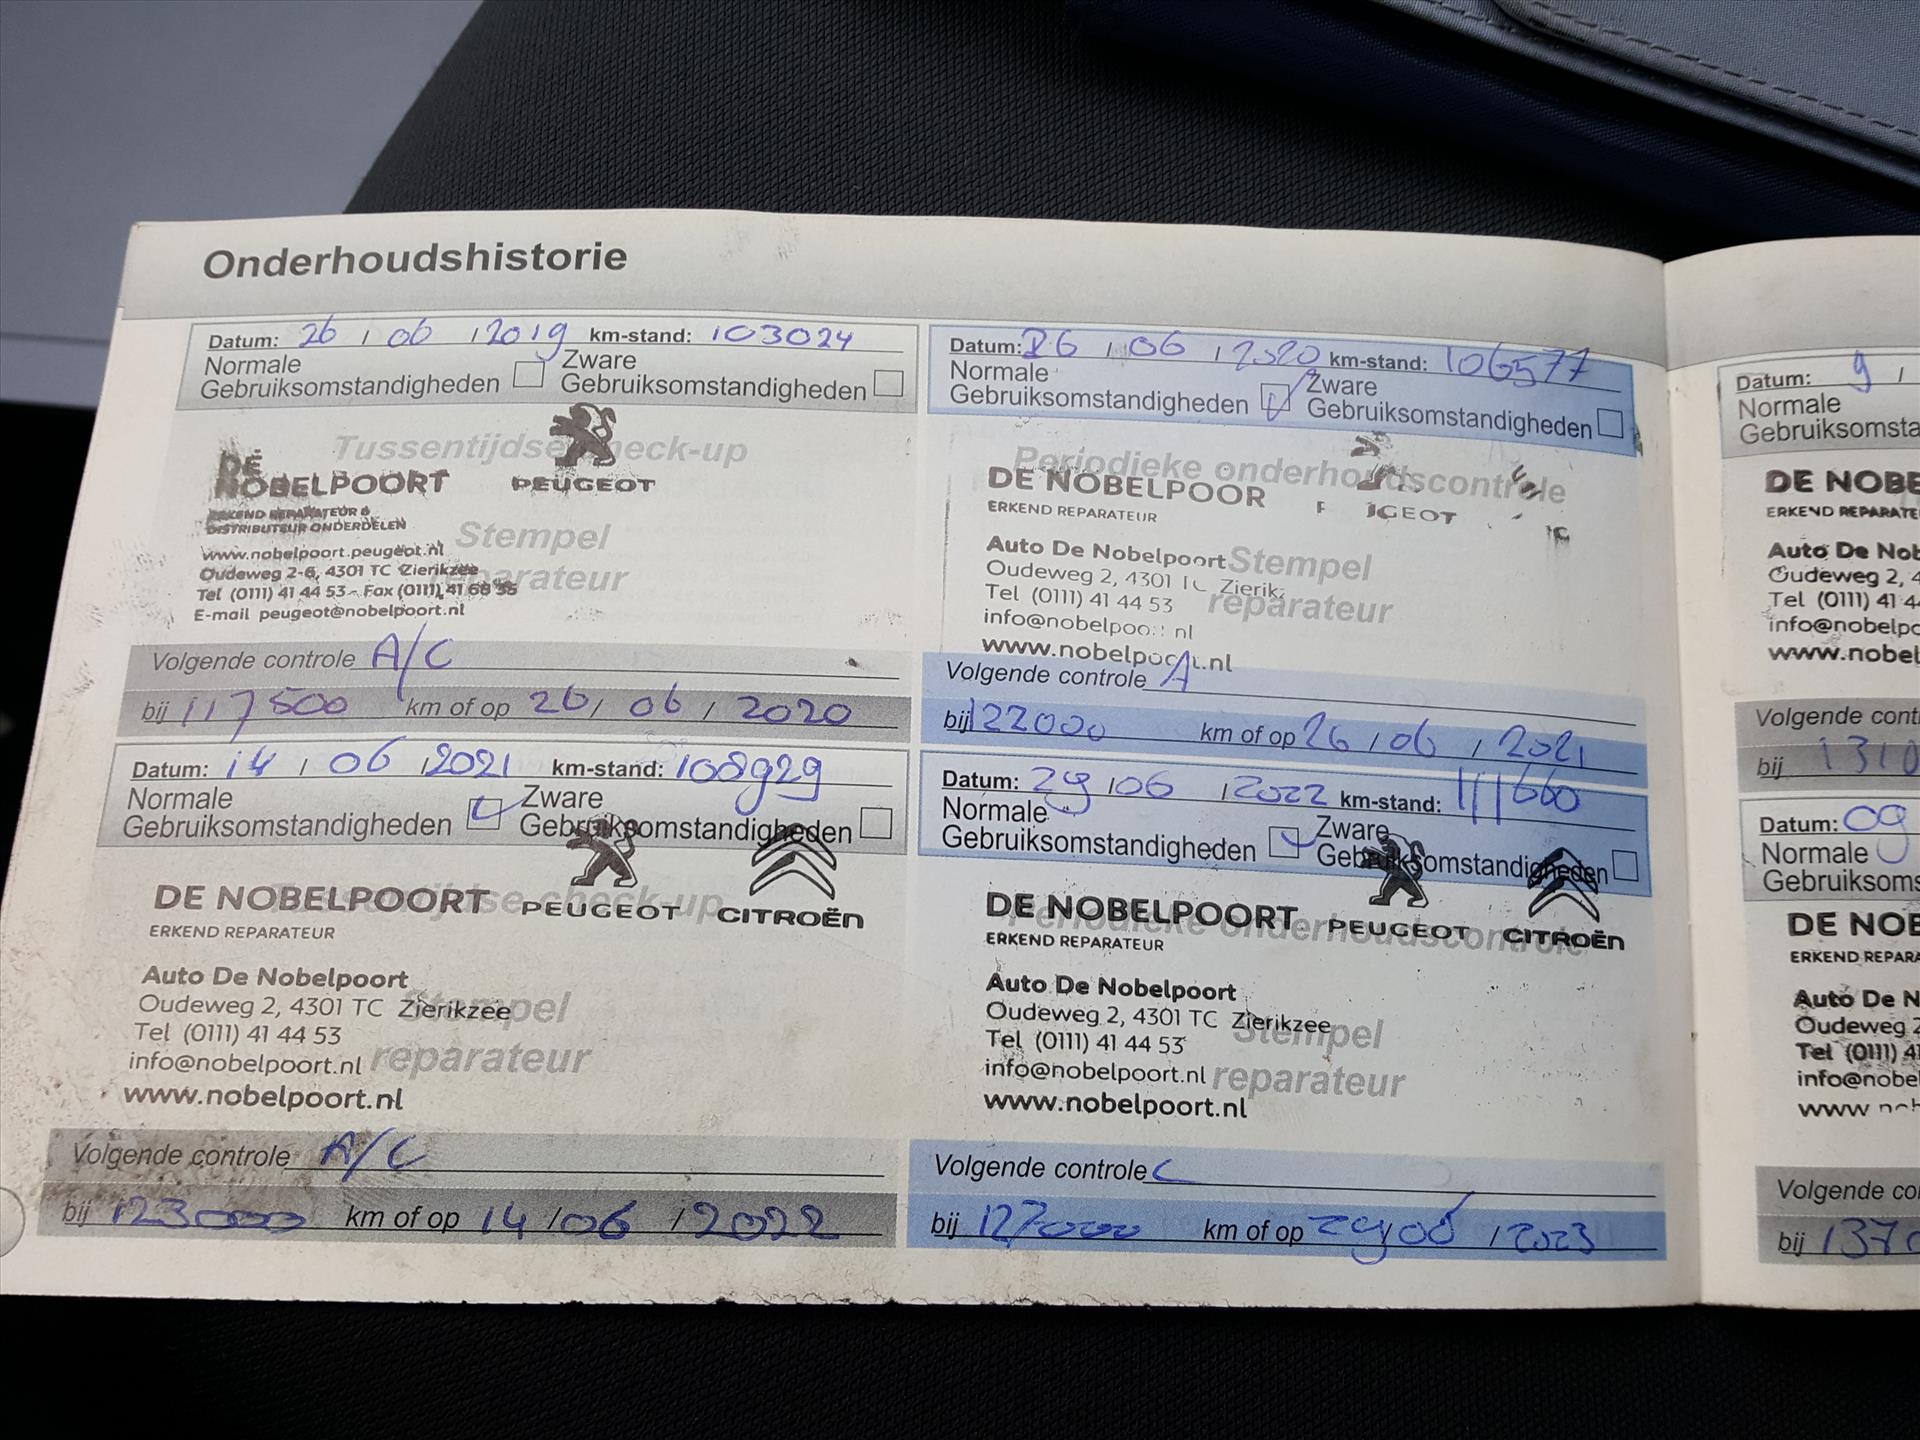 Onderhoudshistorie
Datum: 26 / 06 / 2019 km-stand: 103024
Normale Zware
Gebruiksomstandigheden Gebruiksomstandigheden
Tussentijdse check-up
DE
NOBELPOORT PEUGEOT
ERKEND REPARATEUR &
DISTRIBUTEUR ONDERDELEN
Stempel
www.nobelpoort.peugeot.nl
Oudeweg 2-6, 4301 TC Zierikzee
reparateur
Tel (0111) 41 44 53 - Fax (0111) 41 68 35
E-mail peugeot@nobelpoort.nl
Volgende controle A/C
bij 117500 km of op 26 / 06 / 2020
Datum: 26 / 06 / 2020 km-stand: 106577
Normale Zware
Gebruiksomstandigheden Gebruiksomstandigheden
Periodieke onderhoudscontrole
DE NOBELPOOR
ERKEND REPARATEUR
Auto De Nobelpoort
Stempel
Oudeweg 2, 4301 TC Zierik
Tel (0111) 41 44 53
reparateur
info@nobelpoort.nl
www.nobelpoort.nl
Volgende controle A
bij 122000 km of op 26 / 06 / 2021
Datum: 14 / 06 / 2021 km-stand: 108929
Normale Zware
Gebruiksomstandigheden Gebruiksomstandigheden
Tussentijdse check-up
DE NOBELPOORT PEUGEOT CITROËN
ERKEND REPARATEUR
Auto De Nobelpoort
Stempel
Oudeweg 2, 4301 TC Zierikzee
Tel (0111) 41 44 53
info@nobelpoort.nl
reparateur
www.nobelpoort.nl
Volgende controle A/C
bij 123000 km of op 14 / 06 / 2022
Datum: 29 / 06 / 2022 km-stand: 111660
Normale Zware
Gebruiksomstandigheden Gebruiksomstandigheden
Periodieke onderhoudscontrole
DE NOBELPOORT PEUGEOT CITROËN
ERKEND REPARATEUR
Auto De Nobelpoort
Oudeweg 2, 4301 TC Zierikzee
Stempel
Tel (0111) 41 44 53
info@nobelpoort.nl
reparateur
www.nobelpoort.nl
Volgende controle C
bij 127000 km of op 29 / 06 / 2023
Datum: 9 /
Normale
Gebruiksomsta
DE NOBE
ERKEND REPARATE
Auto De Nob
Oudeweg 2, 4
Tel (0111) 41 4
info@nobelpo
www.nobel
Volgende cont
bij 1310
Datum: 09
Normale
Gebruiksoms
DE NOB
ERKEND REPARA
Auto De N
Oudeweg 2
Tel (0111) 41
info@nobel
www
Volgende co
bij 1370